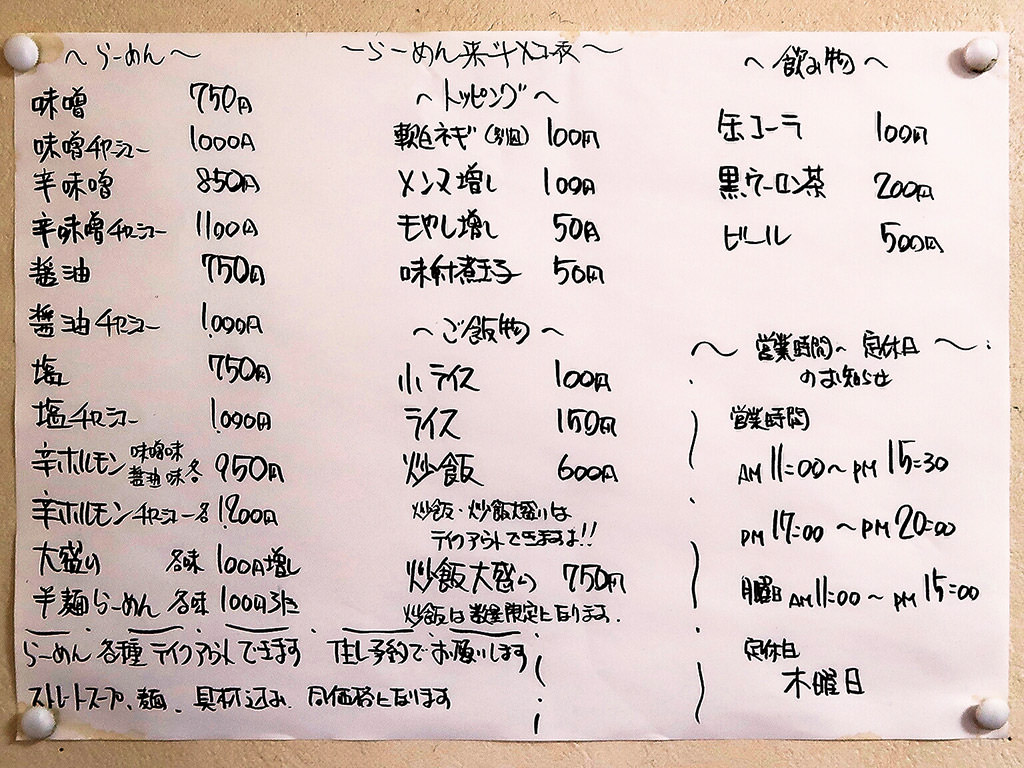 ～らーめん～
味噌 750円
味噌チャーシュー 1000円
辛味噌 850円
辛味噌チャーシュー 1100円
醤油 750円
醤油チャーシュー 1,000円
塩 750円
塩チャーシュー 1,000円
辛ホルモン 味噌味 醤油味 各 950円
辛ホルモンチャーシュー各 1,200円
大盛り 各味 100円増し
半麺らーめん 各味 100円引き
らーめん各種テイクアウトできます 但し予約でお願いします
ストレートスープ、麺、具材込み、同価格となります
～らーめん来斗
～トッピング～
軟白ネギ(別皿) 100円
メンマ増し 100円
モヤシ増し 50円
味付煮玉子 50円
～ご飯物～
小ライス 100円
ライス 150円
炒飯 600円
炒飯・炒飯大盛りは
テイクアウトできますよ!!
炒飯大盛り 750円
炒飯は数量限定となります.
～飲み物～
缶コーラ 100円
黒ウーロン茶 200円
ビール 500円
～営業時間～定休日～
のお知らせ
営業時間
AM 11:00～PM 15:30
PM 17:00～PM 20:00
月曜日 AM 11:00～PM 15:00
定休日
木曜日